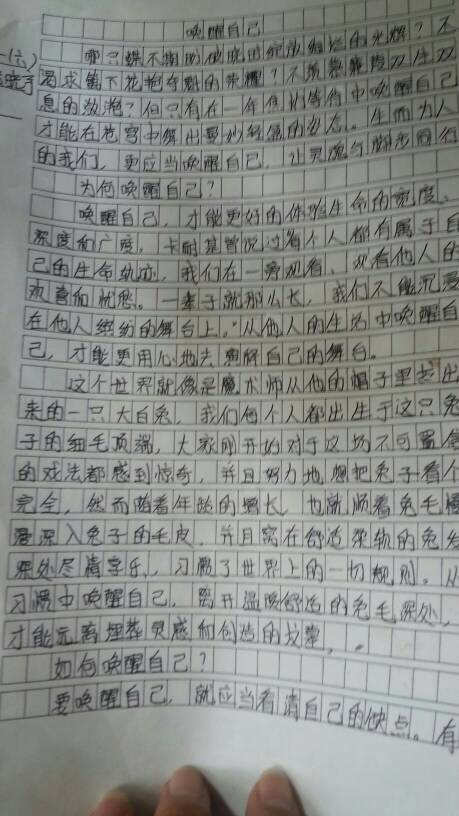 唤醒自己
哪只蝶不期盼破晓时绽放绚烂的光辉？不
渴求镜下花艳夺魁的荣耀？不羡慕兼葭双栖双
息的潋滟？但只有在一年年的等待中唤醒自己
才能在苍穹中舞出曼妙轻盈的姿态。生而为人
的我们，更应当唤醒自己，让灵魂与脚步同行
为何唤醒自己？
唤醒自己，才能更好的体验生命的宽度、
深度和广度。卡耐基曾说过每个人都有属于自
己的生命轨迹，我们在一旁观看，观看他人的
欢喜和忧愁。一辈子就那么长，我们不能沉浸
在他人缤纷的舞台上。从他人的生活中唤醒自
己，才能更用心地去
自己的舞台。
这个世界就像是魔术师从他的帽子里变出
来的一只大白兔，我们每个人都出生于这只兔
子的细毛顶端，大家刚开始对于这场不可思议
的戏法都感到惊奇，并且努力地想把兔子看个
完全，然而随着年龄的增长，也就顺着兔毛慢
慢深入兔子的毛皮，并且窝在舒适柔软的兔毛
深处尽情享乐，习惯了世界上的一切规则。从
习惯中唤醒自己，离开温暖舒适的兔毛深处，
才能远离埋葬灵感和创造的坟墓。
如何唤醒自己？
要唤醒自己，就应当看清自己的缺点。有